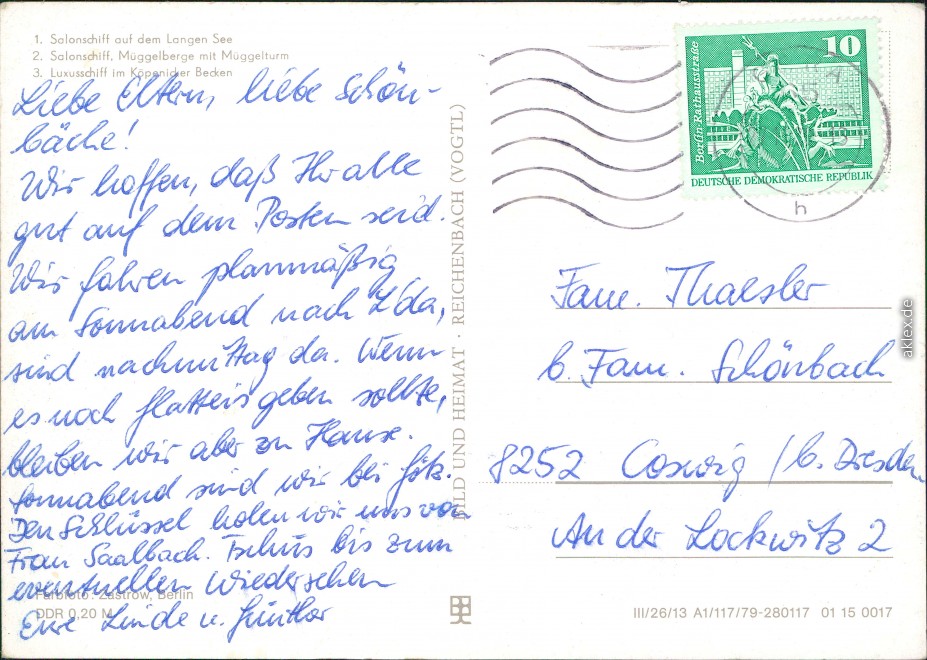 1. Salonschiff auf dem Langen See
2. Salonschiff, Müggelberge mit Müggelturm
3. Luxusschiff im Köpenicker Becken
Liebe Eltern, liebe Schön-
bäche!
Wir hoffen, daß Ihr alle
gut auf dem Posten seid.
Wir fahren planmäßig
am Sonnabend nach
sind nachmittag da. Wenn
es noch Glatteis geben sollte,
bleiben wir aber zu Hause.
Sonnabend sind wir bei Götz.
Den Schlüssel holen wir uns von
Frau Saalbach. Tschüs bis zum
eventuellen Wiedersehen
Eure Linde u. Günther
Farbfoto: Zastrow, Berlin
DDR 0,20 M
BILD UND HEIMAT · REICHENBACH (VOGTL)
10
Berlin-Rathausstraße
DEUTSCHE DEMOKRATISCHE REPUBLIK
h
Fam. Thaesler
b. Fam. Schönbach
8252 Coswig / b. Dresden
An der Lockwitz 2
III/26/13 A1/117/79-280117 01 15 0017
aklex.de